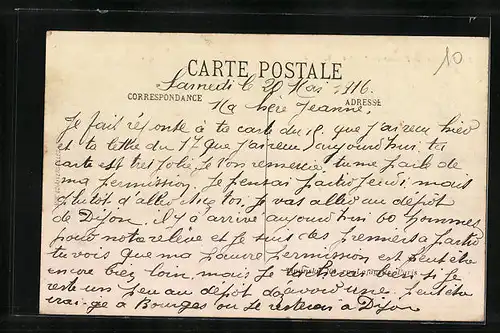 10
CARTE POSTALE
Samedi le 20 Mai 1916.
CORRESPONDANCE
ADRESSE
Ma chère Jeanne,
Je fait réponse à ta carte du 18, que j'ai reçu hier
et ta lettre du 17 que j'ai reçu aujourd'hui, ta
carte est très jolie je t'en remercie. tu me parle de
ma permission. Je pensai partir jeudi mais
plutôt d'aller chez toi, je vas aller au dépôt
de Dijon. il y a arrivé aujourd'hui 60 hommes
pour notre relève et je suis des premiers à partir
tu vois que ma pauvre permission est peut être
encore bien loin, mais je bien si je
reste un peu au dépôt d'avoir une, peut être
irai-je à Bourges ou je resterai à Dijon